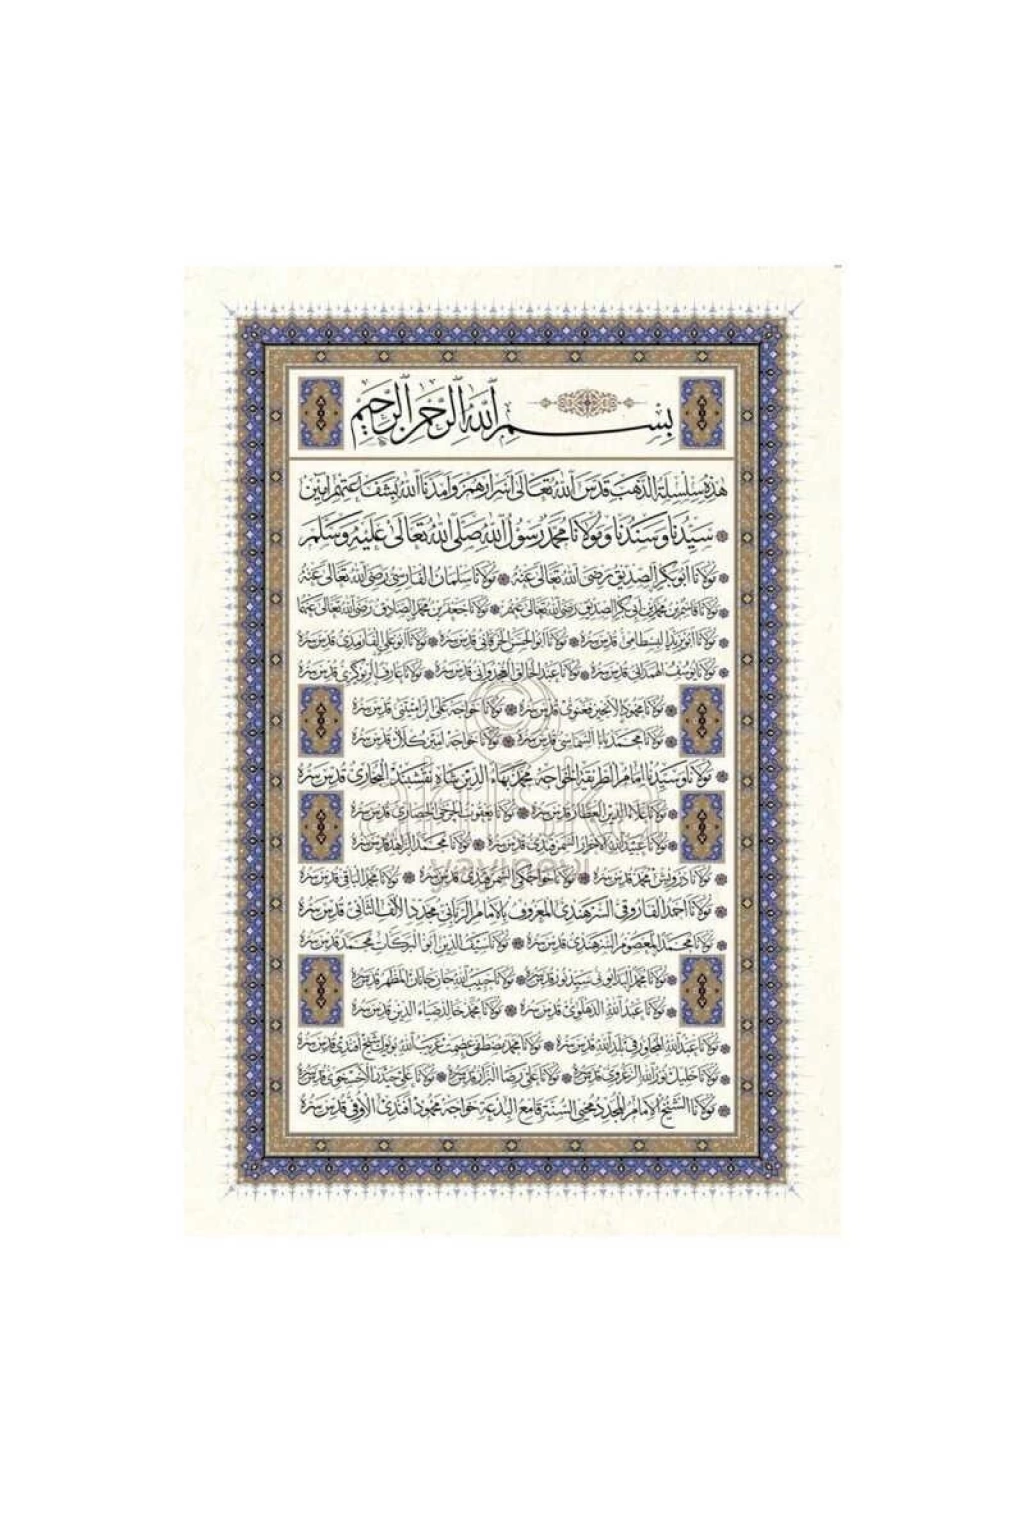 بسم الله الرحمن الرحيم
هذه سلسلة الذهب قدس الله تعالى اسرارهم وامدنا الله بشفاعتهم امين
سيدنا وسندنا ومولانا محمد رسول الله صلى الله تعالى عليه وسلم
مولانا ابو بكر الصديق رضى الله تعالى عنه مولانا سلمان الفارسى رضى الله تعالى عنه
مولانا قاسم بن محمد بن ابى بكر الصديق رضى الله تعالى عنهم مولانا جعفر بن محمد الصادق رضى الله تعالى عنهما
مولانا ابو يزيد البسطامى قدس سره مولانا ابو الحسن الخرقانى قدس سره مولانا ابو على الفارمدى قدس سره
مولانا يوسف الهمدانى قدس سره مولانا عبد الخالق الغجدوانى قدس سره مولانا عارف الريوگرى قدس سره
مولانا محمود الانجير فغنوى قدس سره مولانا خواجه على الراميتنى قدس سره
مولانا محمد بابا السماسى قدس سره مولانا خواجه امير كلال قدس سره
مولانا وسيدنا امام الطريقة الخواجه محمد بهاء الدين شاه نقشبند البخارى قدس سره
مولانا علاء الدين العطار قدس سره مولانا يعقوب الجرخى الحصارى قدس سره
مولانا عبيد الله الاحرار السمرقندى قدس سره مولانا محمد الزاهد قدس سره
مولانا درويش محمد قدس سره مولانا خواجكى السمرقندى قدس سره مولانا محمد الباقى قدس سره
مولانا احمد الفاروقى السرهندى المعروف بالامام الربانى مجدد الالف الثانى قدس سره
مولانا محمد المعصوم السرهندى قدس سره مولانا سيف الدين ابو البركات محمد قدس سره
مولانا محمد البدايونى سيد نور قدس سره مولانا حبيب الله جان جانان المظهر قدس سره
مولانا عبد الله الدهلوى قدس سره مولانا محمد خالد ضياء الدين قدس سره
مولانا عبد الله المجاور فى بلد الله قدس سره مولانا محمد مصطفى عصمت غريب الله بويوك شيخ افندى قدس سره
مولانا خليل نور الله الزغروى قدس سره مولانا على رضا البزاز قدس سره مولانا على حيدر الاخسخوى قدس سره
مولانا الشيخ الامام المجدد محيى السنة قامع البدعة خواجه محمود افندى الاوفى قدس سره
ahıska
yayınevi